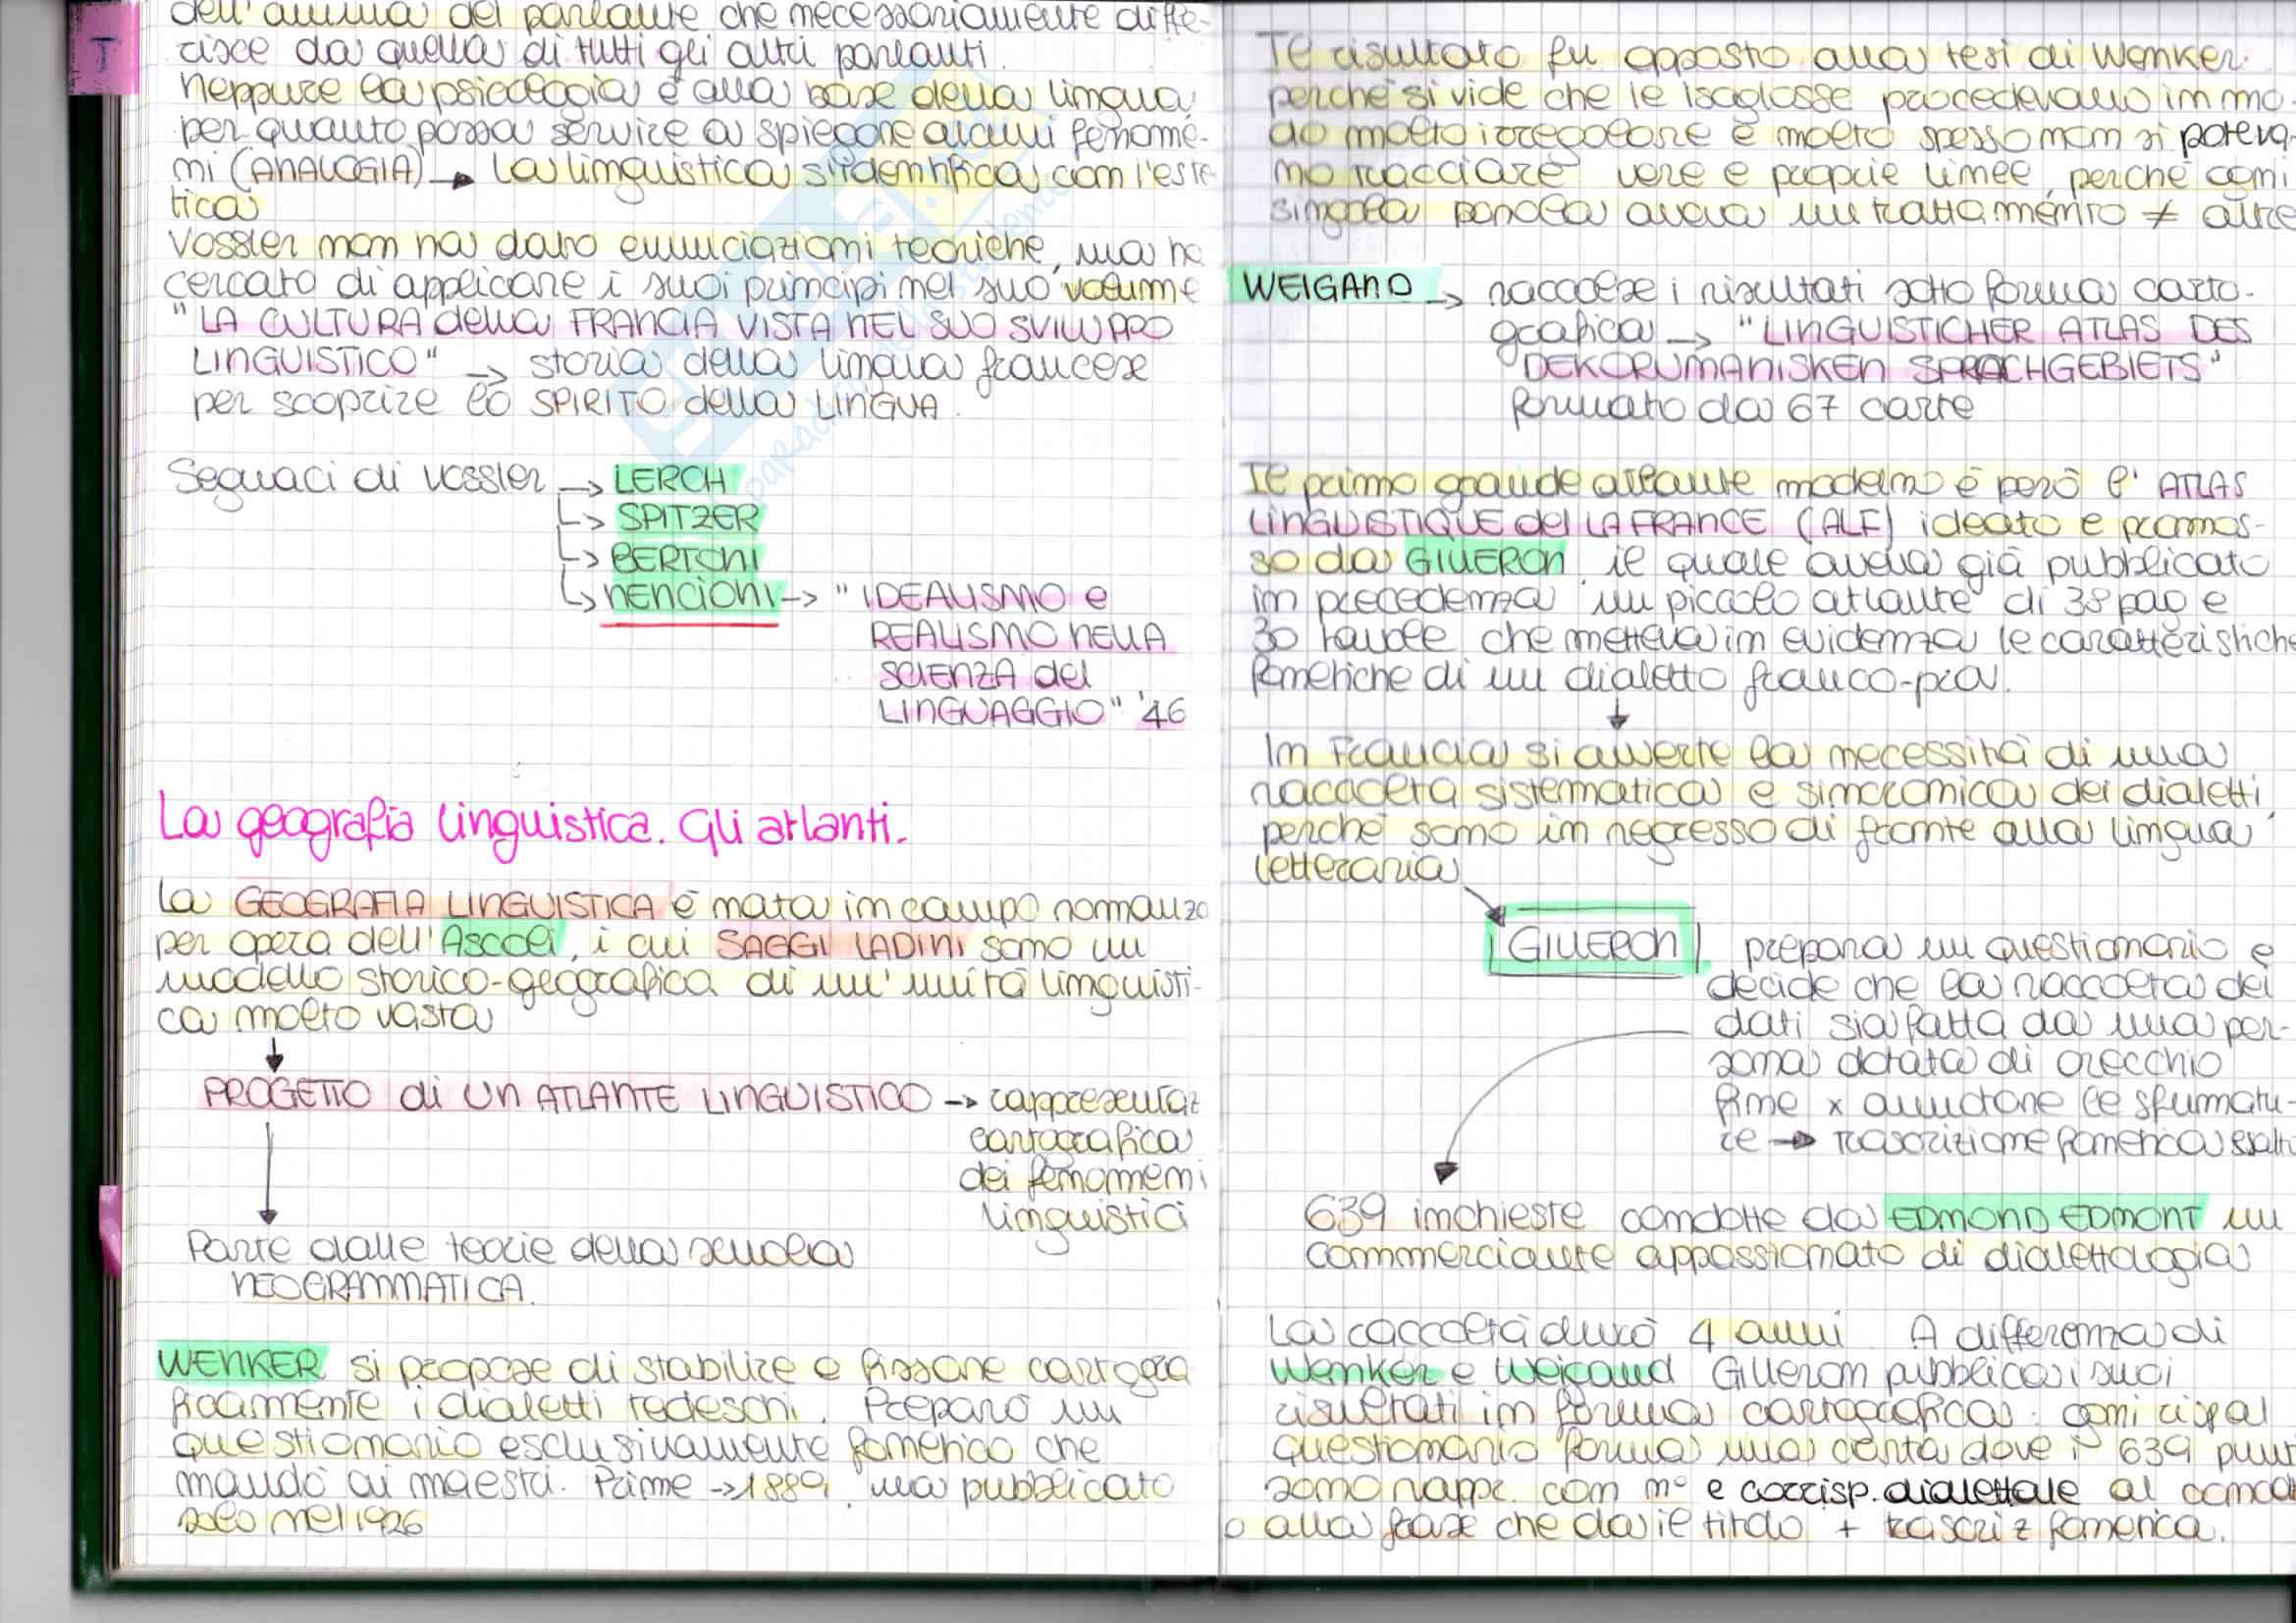 dell'anima del parlante che necessariamente diffe-
risce da quella di tutti gli altri parlanti.
Neppure la psicologia è alla base della lingua
per quanto possa servire a spiegare alcuni fenome-
ni (ANALOGIA) → La linguistica si identifica con l'este-
tica
Vossler non ha dato enunciazioni teoriche, ma ha
cercato di applicare i suoi principi nel suo volume
"LA CULTURA della FRANCIA VISTA NEL SUO SVILUPPO
LINGUISTICO" → storia della lingua francese
per scoprire lo SPIRITO della LINGUA.
Seguaci di Vossler → LERCH
→ SPITZER
→ BERTONI
→ NENCIONI → "IDEALISMO e
REALISMO NELLA
SCIENZA del
LINGUAGGIO" '46
La geografia linguistica. Gli atlanti.
La GEOGRAFIA LINGUISTICA è nata in campo romanzo
per opera dell'Ascoli, i cui SAGGI LADINI sono un
modello storico-geografica di un'unità linguisti-
ca molto vasta
PROGETTO di UN ATLANTE LINGUISTICO → rappresentaz
cartografica
dei fenomeni
linguistici
Parte dalle teorie della scuola
NEOGRAMMATICA.
WENKER si propose di stabilire e fissare cartogra
ficamente i dialetti tedeschi. Preparò un
questionario esclusivamente fonetico che
mandò ai maestri. Prime → 1889, ma pubblicato
solo nel 1926
Il risultato fu opposto alla tesi di Wenker.
perché si vide che le isoglosse procedevano in mo-
do molto irregolare e molto spesso non si poteva-
no tracciare vere e proprie linee, perché ogni
singola parola aveva un trattamento ≠ altre
WEIGAND → raccolse i risultati sotto forma carto-
grafica → "LINGUISTICHER ATLAS DES
DEKORUMANISKEN SPRACHGEBIETS"
formato da 67 carte
Il primo grande atlante moderno è però l'ATLAS
LINGUISTIQUE del LA FRANCE (ALF) ideato e promos-
so da GILLERON, il quale aveva già pubblicato
in precedenza un piccolo atlante di 38 pag e
30 tavole che metteva in evidenza le caratteristiche
fonetiche di un dialetto franco-pro.
In Francia si avverte la necessità di una
raccolta sistematica e sincronica dei dialetti,
perché sono in regresso di fronte alla lingua
letteraria
GILLERON prepara un questionario e
decide che la raccolta dei
dati sia fatta da una per-
sona dotata di orecchio
fine x avvertire le sfumatu-
re → trascrizione fonetica
639 inchieste condotte da EDMOND EDMONT un
commerciante appassionato di dialettologia
La raccolta durò 4 anni. A differenza di
Wenker e Weigand Gilleron pubblica i suoi
risultati in forma cartografica: ogni risp al
questionario forma una carta dove i 639 punti
sono rappr. con n° e corrisp. dialettale al
o alla frase che dà il titolo + trascriz fonetica.